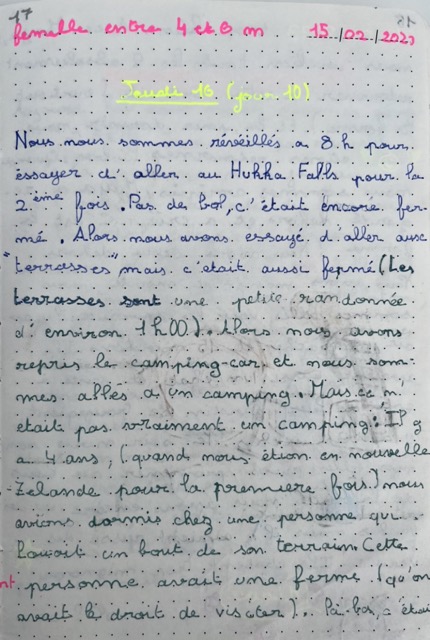 17
femelle entre 4 et 6 m 15/02/2023
Jeudi 16 (jour 10)
Nous nous sommes réveillés a 8 h pour
éssayer d'aller au Hukka Falls pour la
2ème fois. Pas de bol, c'était encore fer-
mé. Alors nous avons essayé d'aller aux
"terrasses" mais c'etait aussi fermé (Les
terrasses sont une petite randonnée
d'environ 1h00). Alors nous avons
repris le camping-car et nous som-
mes allés a un camping. Mais ca n'
etait pas vraiment un camping: Il y
a 4 ans, (quand nous étion en nouvelle
-Zelande pour la premiere fois) nous
avions dormis chez une personne qui
louait un bout de son terrain. Cette
nt personne avait une ferme (qu'on
avait le droit de visiter). Là-bas, c'étai